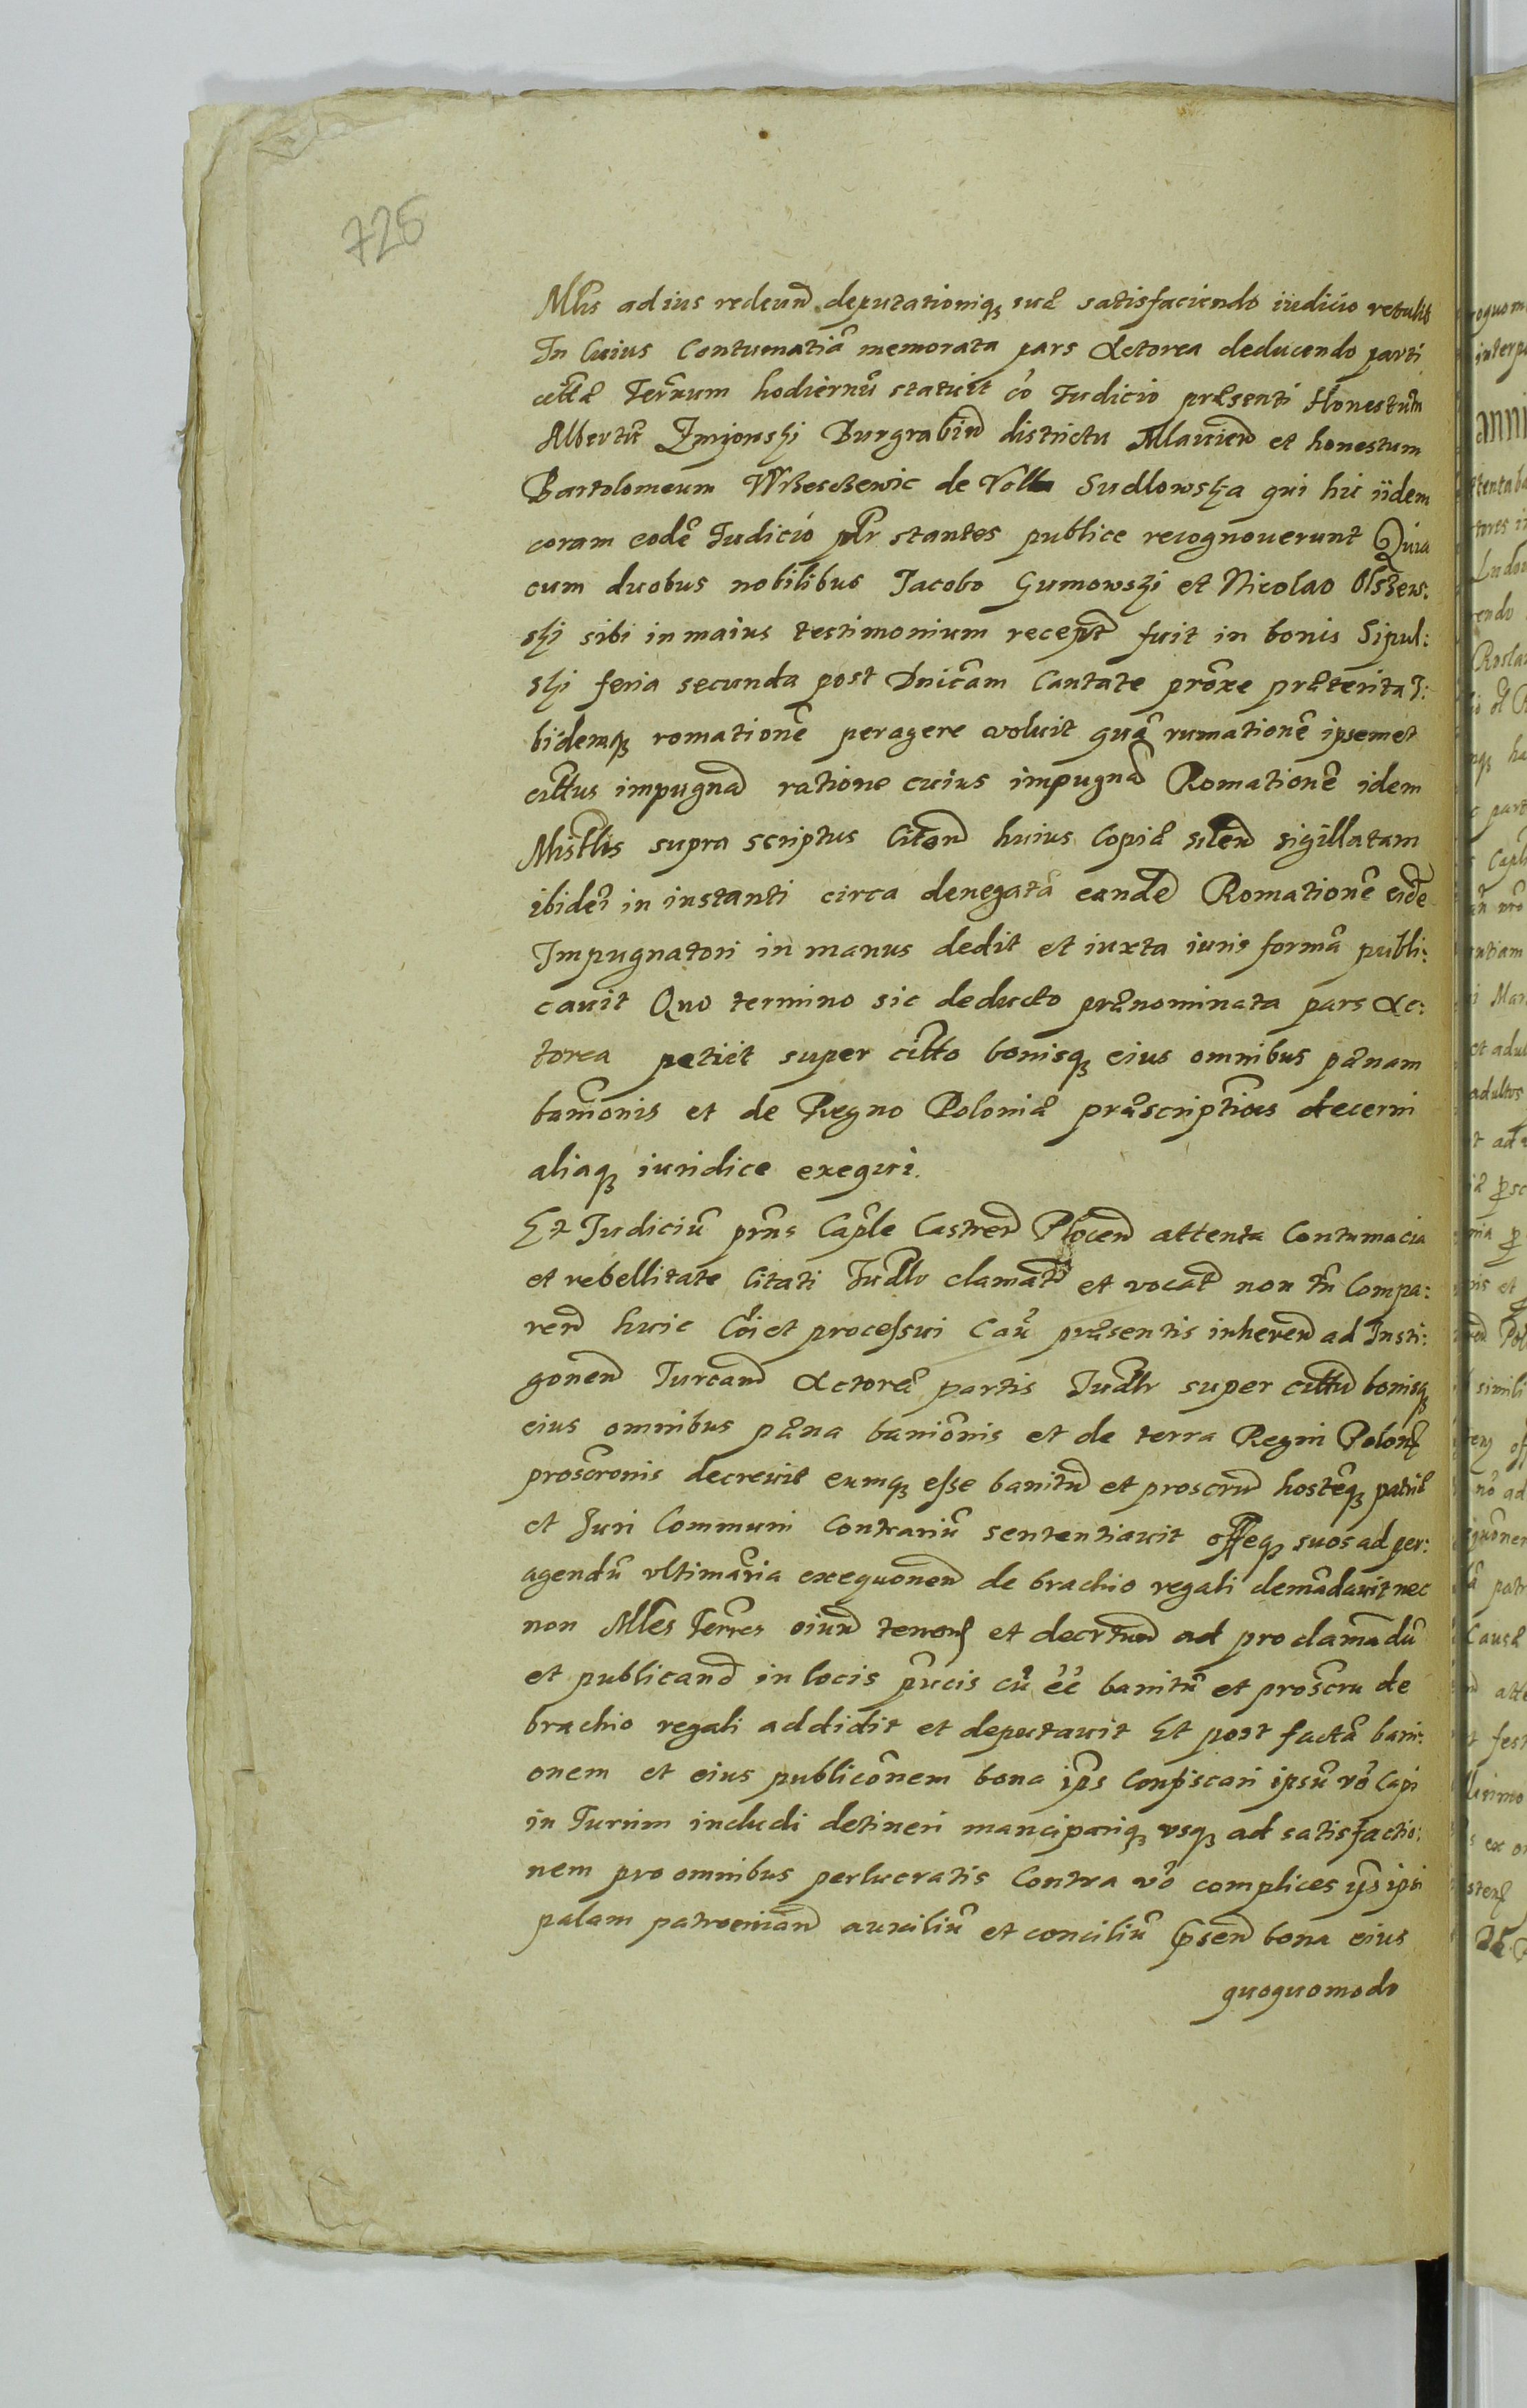 725
Mlis ad ius redeund deputationiq suæ satisfaciendo iudicio retulit
In Cuius Contumatiã memorata pars Actorea deducendo parti
cittæ Ternum hodiernũ statuit cô Iudicio præsenti Honestum
Albertũ Zmijowski Burgrabiũ districtu Mlauien et honestum
Bartolomeum de Volla Sudlowska qui hic iidem
coram eodẽ Iudicio plr stantes publice recognouerunt Quia
cum duobus nobilibus Jacobo Gumowski et Nicolao Olszews:
ski sibi in maius testimonium recept fuit in bonis Sipul:
ski feria secunda post Dnicam Cantate proxe præterita I:
bidemq romationẽ peragere voluit quã rumationẽ ipsemet
cittus impugnad ratione cuius impugnad Romationẽ idem
Mistlis supra scriptus Citaon huius Copiæ silem sigillatam
ibidẽ in instanti circa denegatã eandẽ Romationẽ eidẽ
Impugnatori in manus dedit et iuxta iuris formã publi:
cauit Quo termino sic deducto prænominata pars Ac:
torea petiit super citto bonisq eius omnibus pænam
baniõnis et de Regno Poloniæ præscriptiõis decerni
aliaq iuridice exequi.
Et Iudiciũ prñs Caple Castren Plocen attenta Contumacia
et rebellitate Citati Iudlr clamat et vocat non tñ Compa:
ren huic Côi et processui Cau præsentis inheren ad Insti:
gonem Iurcand Actoreæ partis Iudlr super cittũ bonisq
eius omnibus pæna baniõnis et de terra Regni Polon
proscronis decreuit eumq esse banitũ et proscrũ hostẽq patriæ
et Iuri Communi Contrariũ sententiauit offeq suos ad per:
agendũ vltimãria exequonem de brachio regali demãdauit nec
non Mles Terres oiund et decrtum ad proclamandũ
et publicand in locis pũcis cũ eẽ banitũ et proscru de
brachio regali addidit et deputauit Et post factã bani:
onem et eius publicõnem bona ips Confiscari ipsũ võ Capi
in Turrim includi detineri mancipariq vsq ad satisfactio:
nem pro omnibus perlucratis Contra võ complices ips ipsi
palam patrocinand auxiliũ et conciliũ psen bona eius
quoquomodo